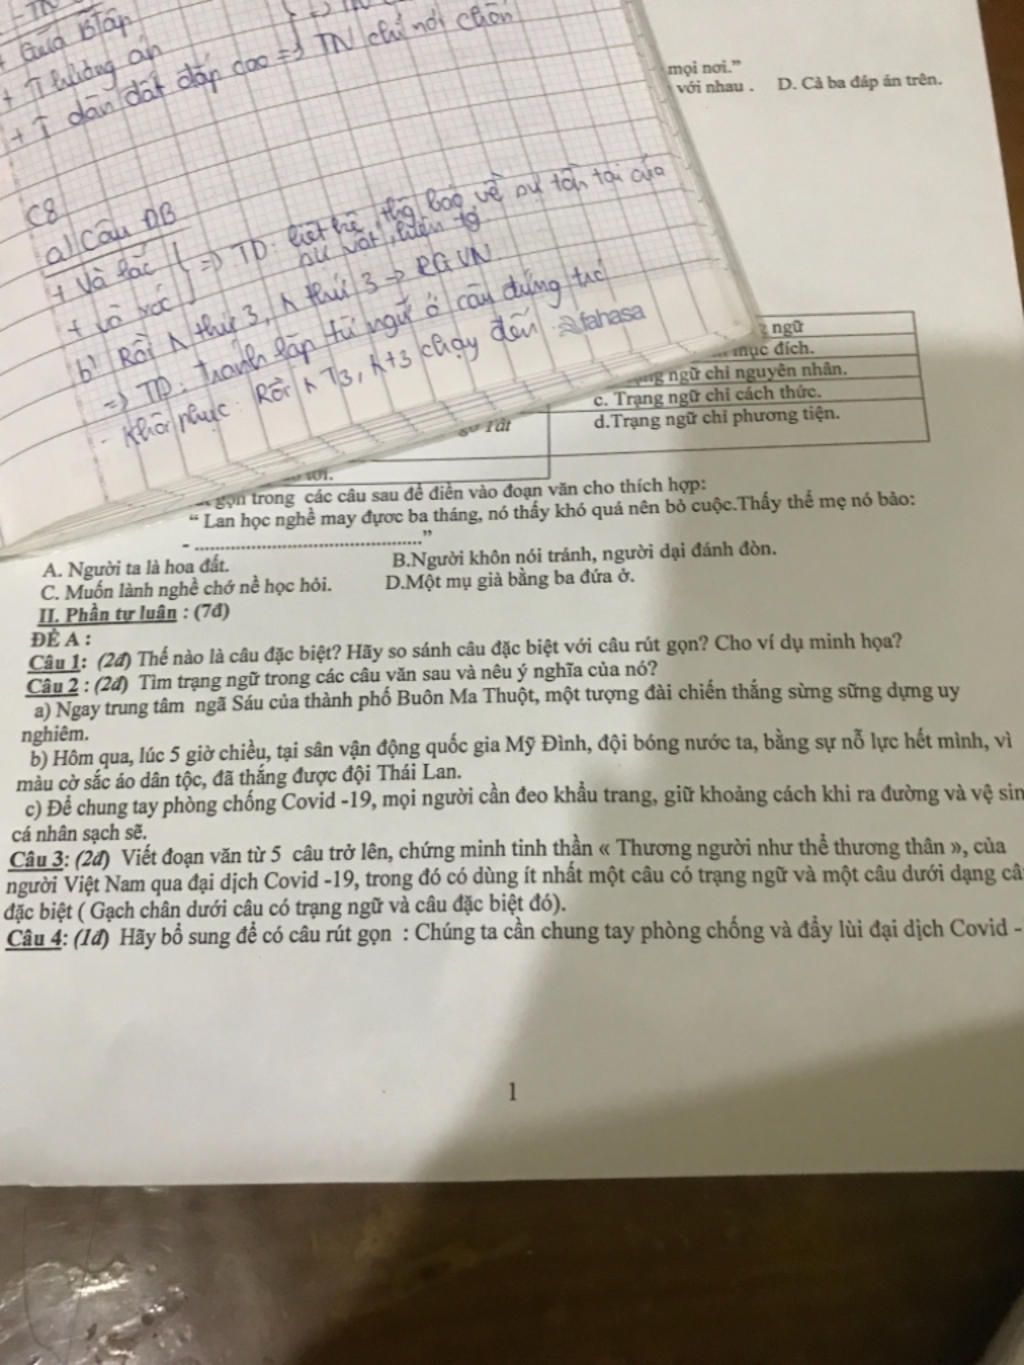 + Giữa BTáp
+ T thường án
+ T dân đất đắp cao => TN chỉ nơi chốn
C8
a) Câu ĐB
+ Và lắc } => TD: liệt kê, thg báo về sự tồn tại của
+ và xóc } sự vật, hiện tg
b) Rồi ^ thứ 3, ^ thứ 3 -> RGVN
=> TD: Tránh lặp từ ngữ ở câu đứng trc
- Khôi phục: Rồi ^ T3, ^ t3 chạy đến
fahasa
mọi nơi.”
với nhau . D. Cả ba đáp án trên.
ngữ
mục đích.
ng ngữ chỉ nguyên nhân.
c. Trạng ngữ chỉ cách thức.
d.Trạng ngữ chỉ phương tiện.
Tất
gọn trong các câu sau để điền vào đoạn văn cho thích hợp:
“ Lan học nghề may được ba tháng, nó thấy khó quá nên bỏ cuộc.Thấy thế mẹ nó bảo:
- ..............................................”
A. Người ta là hoa đất. B.Người khôn nói tránh, người dại đánh đòn.
C. Muốn lành nghề chớ nề học hỏi. D.Một mụ già bằng ba đứa ở.
II. Phần tự luận : (7đ)
ĐỀ A :
Câu 1: (2đ) Thế nào là câu đặc biệt? Hãy so sánh câu đặc biệt với câu rút gọn? Cho ví dụ minh họa?
Câu 2 : (2đ) Tìm trạng ngữ trong các câu văn sau và nêu ý nghĩa của nó?
a) Ngay trung tâm ngã Sáu của thành phố Buôn Ma Thuột, một tượng đài chiến thắng sừng sững dựng uy
nghiêm.
b) Hôm qua, lúc 5 giờ chiều, tại sân vận động quốc gia Mỹ Đình, đội bóng nước ta, bằng sự nỗ lực hết mình, vì
màu cờ sắc áo dân tộc, đã thắng được đội Thái Lan.
c) Để chung tay phòng chống Covid -19, mọi người cần đeo khẩu trang, giữ khoảng cách khi ra đường và vệ sin
cá nhân sạch sẽ.
Câu 3: (2đ) Viết đoạn văn từ 5 câu trở lên, chứng minh tinh thần « Thương người như thể thương thân », của
người Việt Nam qua đại dịch Covid -19, trong đó có dùng ít nhất một câu có trạng ngữ và một câu dưới dạng câ
đặc biệt ( Gạch chân dưới câu có trạng ngữ và câu đặc biệt đó).
Câu 4: (1đ) Hãy bổ sung để có câu rút gọn : Chúng ta cần chung tay phòng chống và đẩy lùi đại dịch Covid -
1